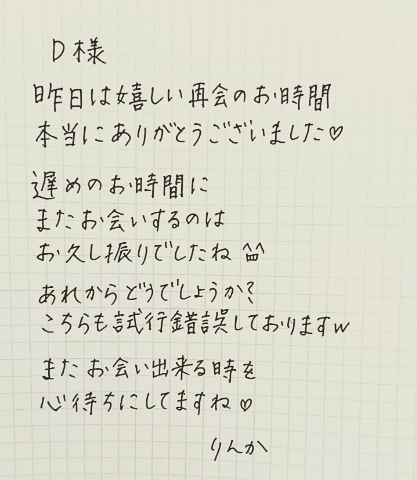 D様
昨日は嬉しい再会のお時間
本当にありがとうございました♡
遅めのお時間に
またお会いするのは
お久し振りでしたね ^^
あれからどうでしょうか?
こちらも試行錯誤しておりますw
またお会い出来る時を
心待ちにしてますね♡
りんか